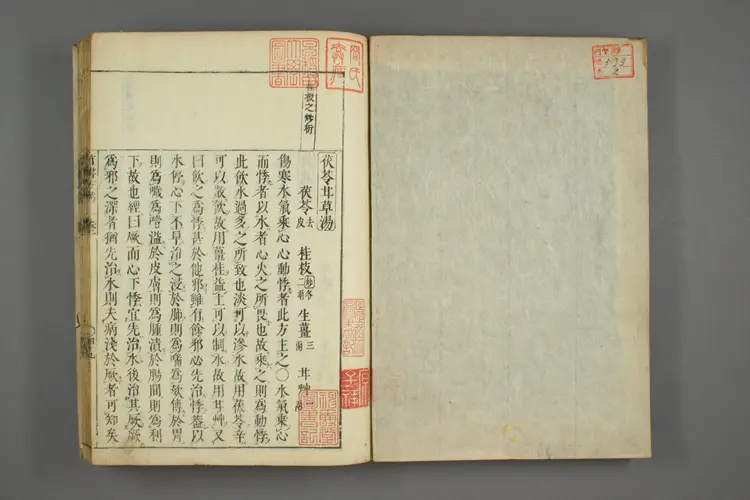 茯苓甘草湯
茯苓去皮 桂枝各二兩 生薑三兩 甘艸一兩
傷寒水氣乘心心動悸者此方主之〇水氣乘心
而悸者以水者心火之所畏也故乘之則爲動悸
此飲水過多之所致也淡可以滲水故用茯苓辛
可以散飲故用薑桂益土可以制水故用甘艸又
曰飲之爲悸甚於他邪雖有餘邪必先治悸蓋以
水停心下不早治之浸於肺則爲喘爲欬傳於胃
則爲噦爲噎溢於皮膚則爲腫漬於腸間則爲利
下故也經曰厥而心下悸宜先治水後治其厥厥
爲邪之深者猶先治水則夫病淺於厥者可知矣